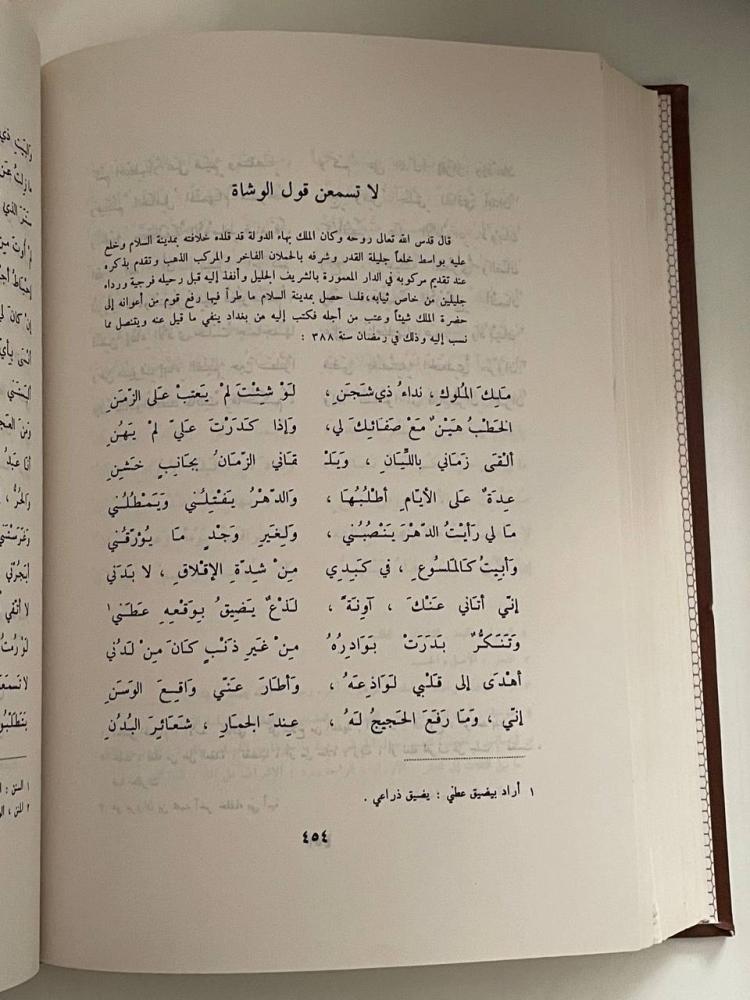 لا تسمعن قول الوشاة
قال قدس الله تعالى روحه وكان الملك بهاء الدولة قد قلده خلافته بمدينة السلام وخلع
عليه بواسط خلعاً جليلة القدر وشرفه بالحملان الفاخر والمركب الذهب وتقدم بذكره
عند تقديم مركوبه في الدار المعمورة بالشريف الجليل وأنفذ إليه قبل رحيله فرجية ورداء
جليلين من خاص ثيابه، فلما حصل بمدينة السلام ما طرأ فيها رفع قوم من أعوانه إلى
حضرة الملك شيئاً وعتب من أجله فكتب إليه من بغداد ينفي ما قيل عنه ويتنصل مما
نسب إليه وذلك في رمضان سنة ٣٨٨ :
مَلِكَ المُلوكِ، نداءُ ذي شَجَنِ، لَوْ شِئْتَ لمْ يَعتِبْ على الزّمَنِ
الخَطْبُ هَيْنٌ مَعْ صَفَائِكَ لي، وَإذا كَدَرْتَ عَليّ لمْ يَهُنِ
ألْقَى زَمَاني باللَّيَانِ ، وَيَلْـ ـقَاني الزّمَانُ بجَانِبٍ خَشِنِ
عِدَةٌ عَلى الأيّامِ أطْلُبُهَا ، وَالدّهْرُ يَفْتِلُني وَيَمْطُلُني
مَا لي رَأيْتُ الدّهْرَ يَنْصُبُني ، وَلِغَيرِ وَجْدٍ مَا يُؤرّقُني
وَأبِيتُ كَالمَلسُوعِ ، في كَبِدي مِنْ شِدّةِ الإقْلاقِ ، لا بَدَني
إنّي أتَاني عَنْكَ ، آوِنَةً ، لَذْعٌ يَضِيقُ بِوَقْعِهِ عَطَني١
وَتَنَكُّرٌ بَدَرَتْ بَوَادِرُهُ مِنْ غَيرِ ذَنْبٍ كَانَ مِنْ لَدُني
أهْدَى إلى قَلْبي لَوَاذِعَهُ ، وَأطَارَ عَنّي وَاقِعَ الوَسَنِ
إنّي ، وَمَا رَفَعَ الحَجيجُ لَهُ ، عِندَ الجِمَارِ ، شَعَائِرَ البُدُنِ
١ أراد بيضيق عطني : يضيق ذراعي .
٤٥٤